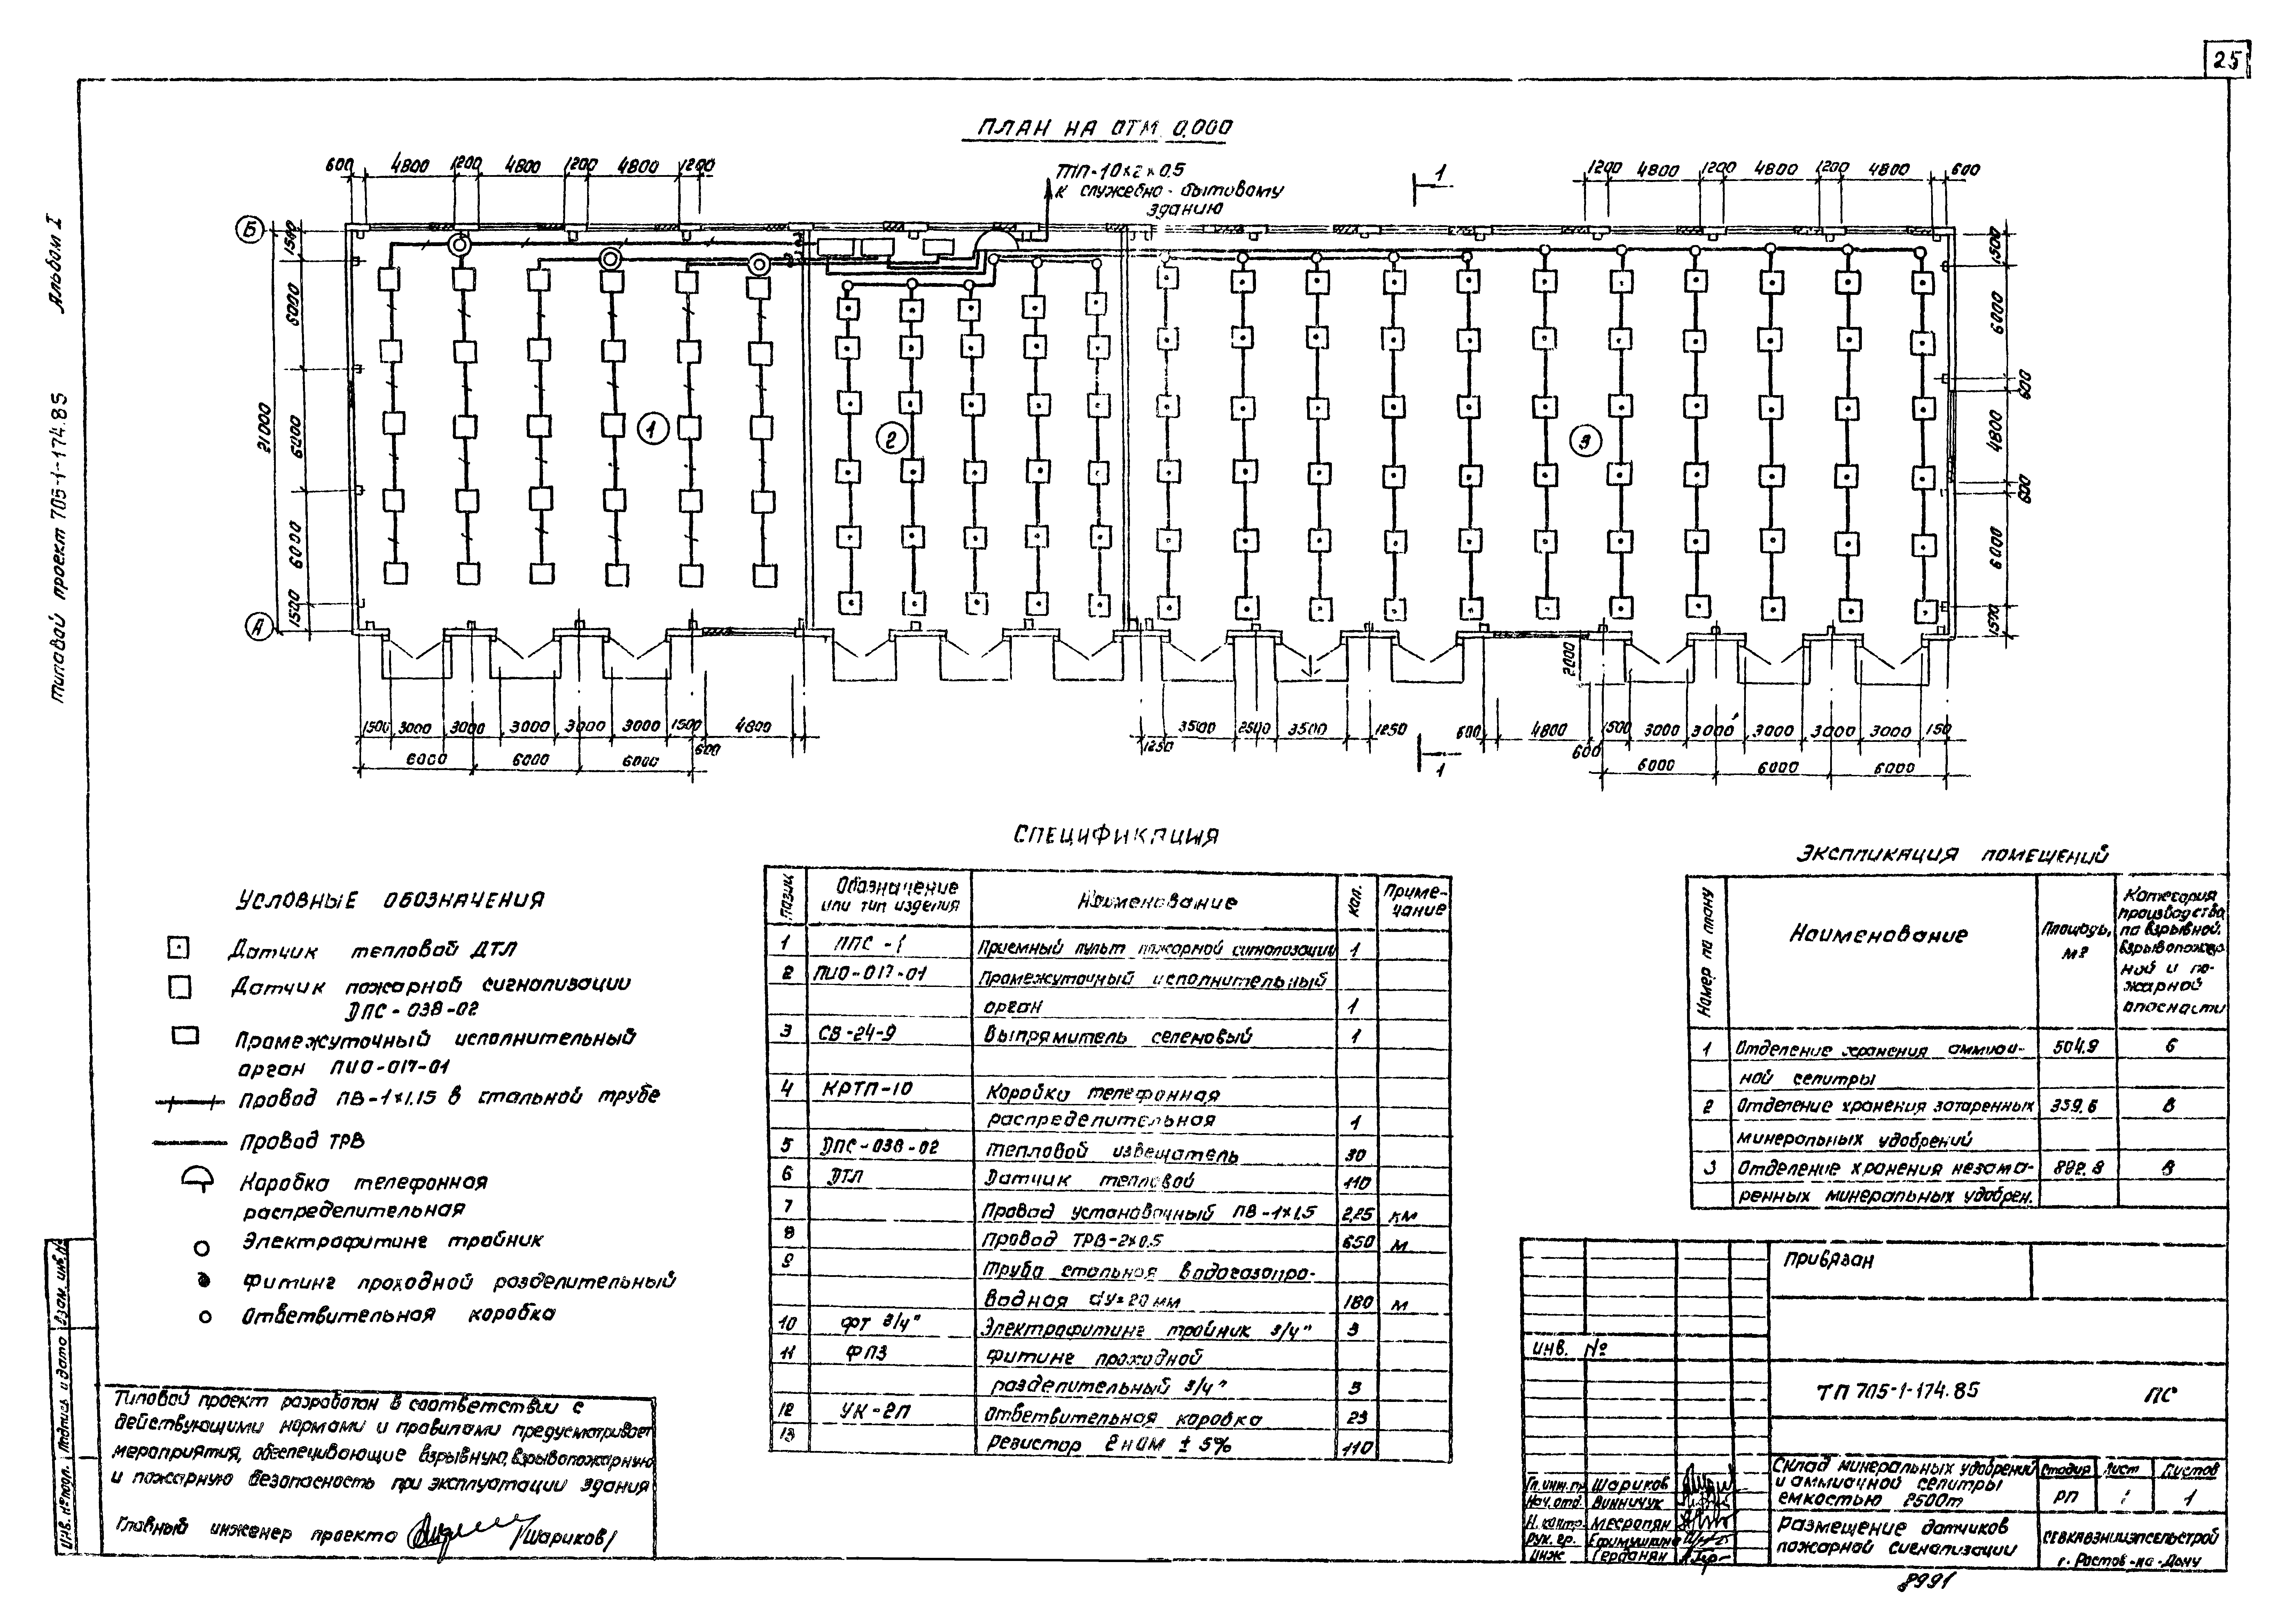 25
Альбом I
Типовой проект 705-1-174.85
ПЛАН НА ОТМ. 0.000
600 4800 1200 4800 1200 4800 1200
ТПП-10×2×0.5
к служебно-бытовому
зданию
1
1200 4800 1200 4800 1200 4800 600
Б
А
1500 6000 6000 6000 1500
21000
1 2 3
1500 6000 600 4800 600 6000 1500
2000
1500 3000 3000 3000 3000 3000 1500 600 4800
6000 6000 6000
1250 3500 2500 3500 1250 600 4800 600 1500 3000 3000 3000 3000 3000 150
6000 6000 6000
1
УСЛОВНЫЕ ОБОЗНАЧЕНИЯ
Датчик тепловой ДТЛ
Датчик пожарной сигнализации
ДПС-038-02
Промежуточный исполнительный
орган ПИО-017-01
Провод ПВ-1×1.15 в стальной трубе
Провод ТРВ
Коробка телефонная
распределительная
Электрофитинг тройник
Фитинг проходной разделительный
Ответвительная коробка
Типовой проект разработан в соответствии с
действующими нормами и правилами предусматривает
мероприятия, обеспецивающие взрывную, взрывопожарную
и пожарную безопасность при эксплуатации здания
Главный инженер проекта /Шариков/
СПЕЦИФИКАЦИЯ
Позиц Обозначение или тип изделия Наименование Кол. Примечание
1 ППС-1 Приемный пульт пожарной сигнализации 1
2 ПИО-017-01 Промежуточный исполнительный
орган 1
3 СВ-24-9 Выпрямитель селеновый 1
4 КРТП-10 Коробка телефонная
распределительная 1
5 ДПС-038-02 Тепловой извещатель 30
6 ДТЛ Датчик тепловой 110
7 Провод установочный ПВ-1×1.5 2,25 км
8 Провод ТРВ-2×0.5 650 м
9 Труба стальная водогазопро-
водная dу=20 мм 180 м
10 ФТ 3/4" Электрофитинг тройник 3/4" 3
11 ФПЗ Фитинг проходной
разделительный 3/4" 3
12 УК-2П Ответвительная коробка 23
13 Резистор 2 кОм ± 5% 110
ЭКСПЛИКАЦИЯ ПОМЕЩЕНИЙ
Номер по плану Наименование Площадь, м² Категория производства по взрывной, взрывопожарной и пожарной опасности
1 Отделение хранения аммиач-
ной селитры 504.9 Б
2 Отделение хранения затаренных 359.6 В
минеральных удобрений
3 Отделение хранения незата- 892.8 В
ренных минеральных удобрен.
Привязан
Инв. №
ТП 705-1-174.85 ПС
Гл. инж. пр. Шариков
Нач. отд. Винничук
Н. контр. Месропян
Рук. гр. Ефимушкина
Инж Герданян
Склад минеральных удобрений
и аммиачной селитры
емкостью 2500т
Стадия Лист Листов
РП 1 1
Размещение датчиков
пожарной сигнализации
СЕВКАВЗНИИЭПСЕЛЬСТРОЙ
г. Ростов-на-Дону
Инв. № подл. Подпись и дата Взам. инв. №
8991